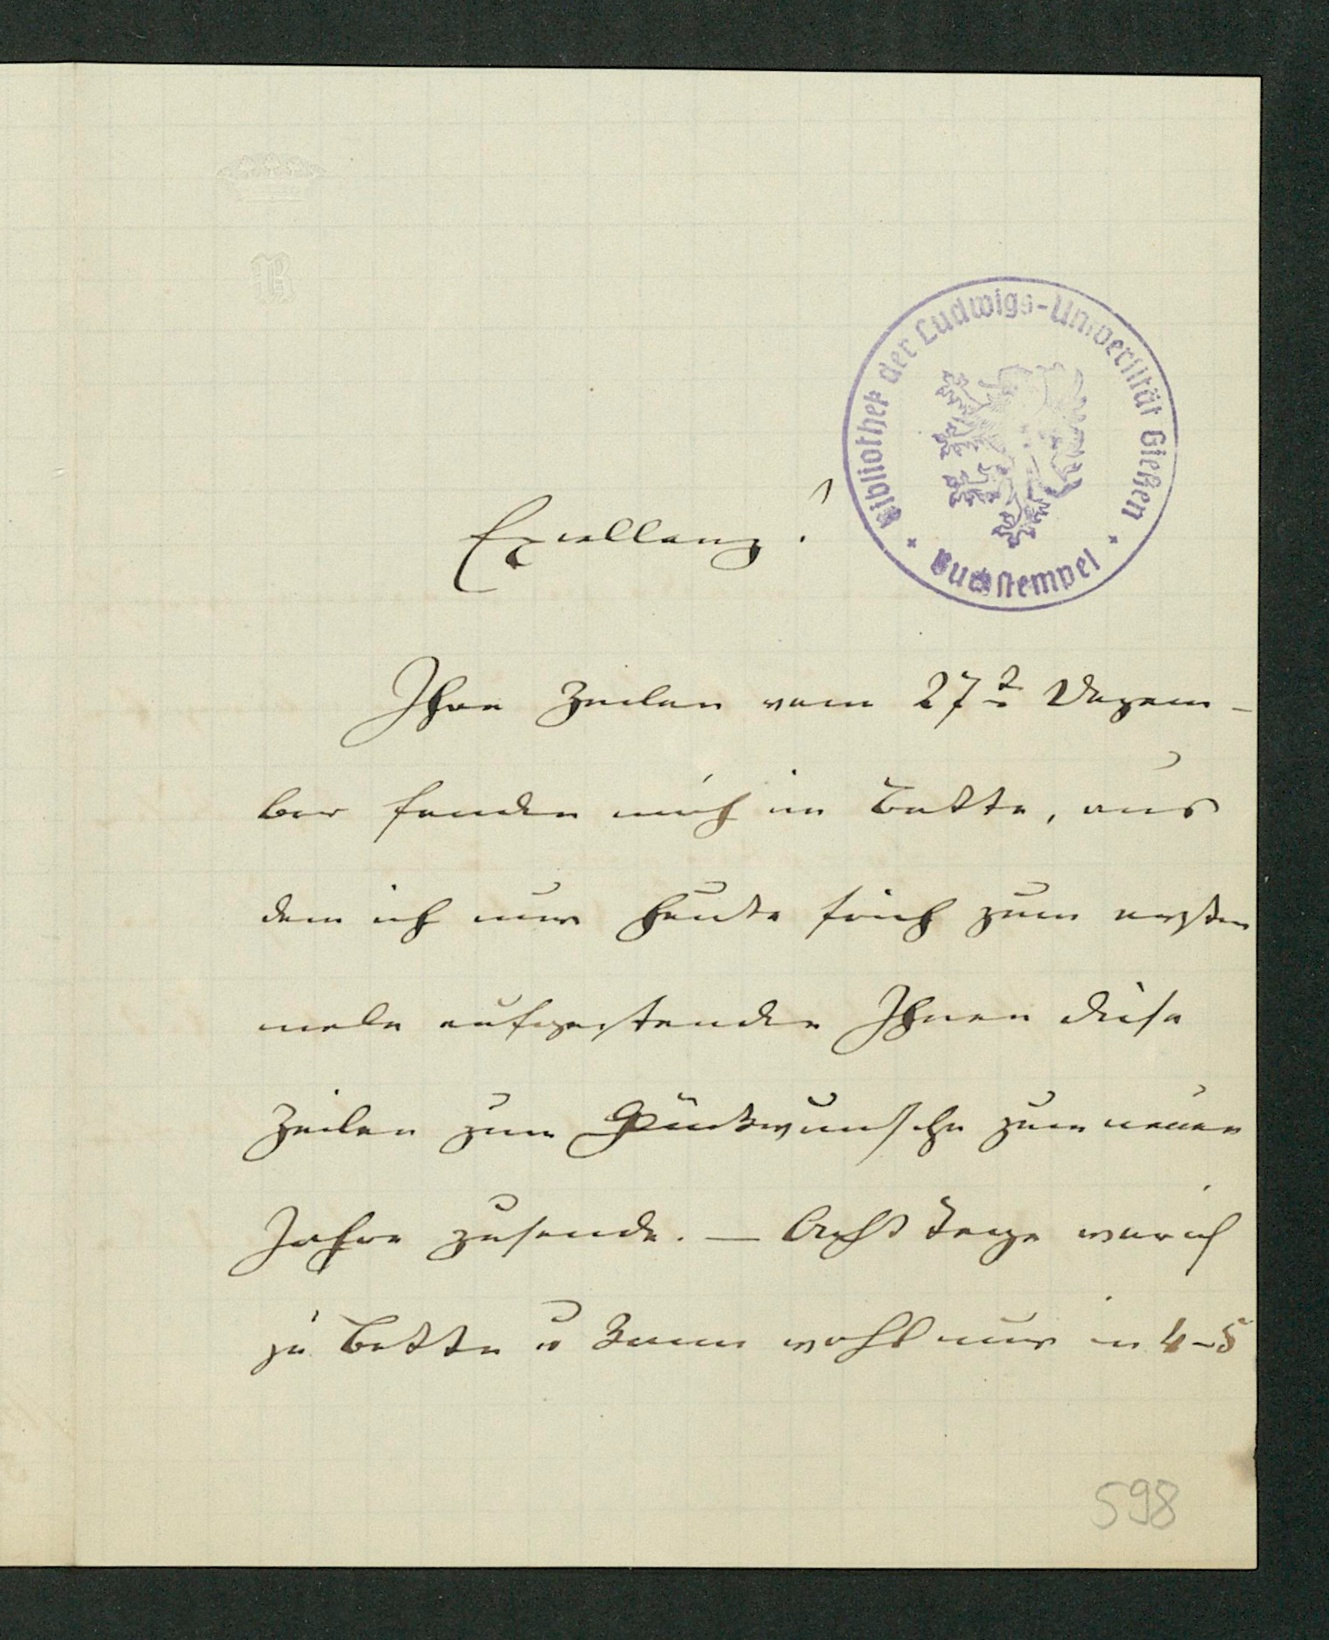 B
Bibliothek der Ludwigs-Universität Gießen
Buchstempel
Excellenz!
Ihre Zeilen vom 27t Dezem-
ber fanden mich im Bette, aus
dem ich nur heute früh zum ersten
male aufgestanden Ihnen diese
Zeilen zum Glückwunsche zum neuen
Jahre zusende. — Acht Tage war ich
zu Bette u kann wohl nur in 4-5
598